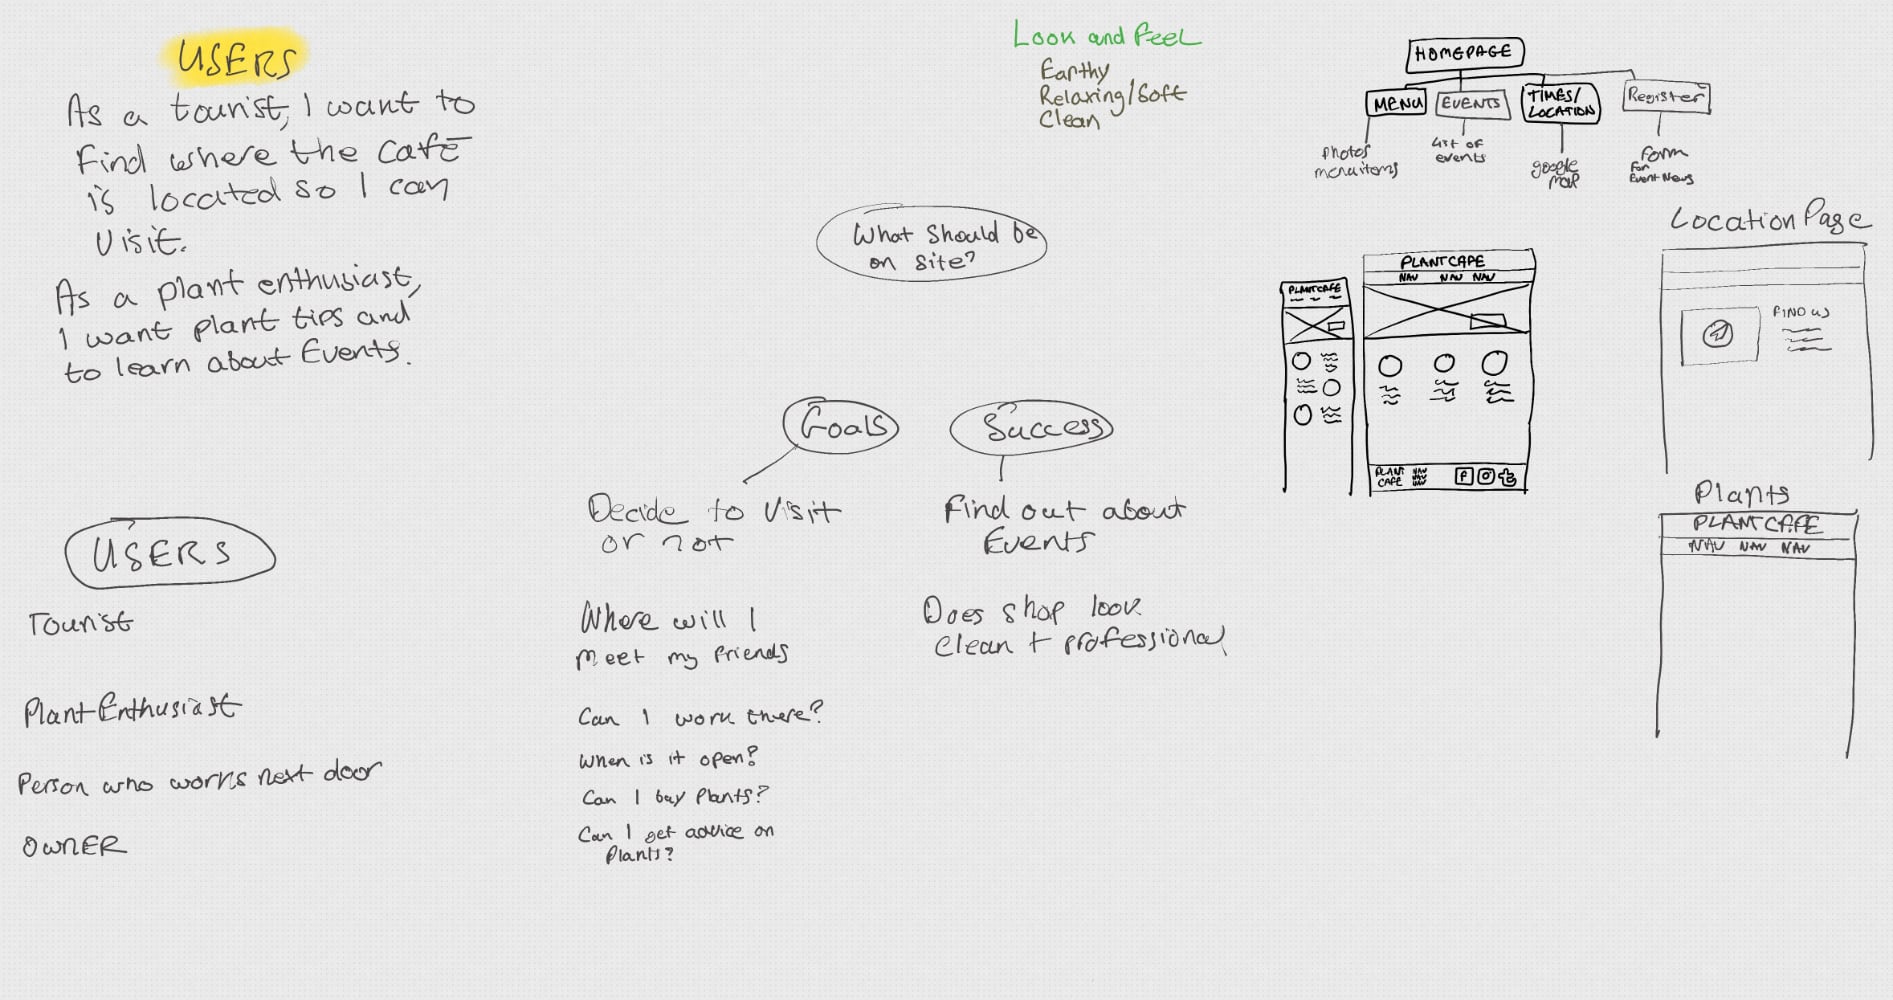 USERS
As a tourist, I want to
find where the café
is located so I can
visit.
As a plant enthusiast,
I want plant tips and
to learn about Events.
USERS
Tourist
Plant Enthusiast
Person who works next door
OWNER
Look and feel
Earthy
Relaxing/Soft
Clean
What should be
on site?
Goals
Decide to visit
or not
Where will I
meet my friends
Can I work there?
When is it open?
Can I buy plants?
Can I get advice on
Plants?
Success
Find out about
Events
Does shop look
clean + professional
HOMEPAGE
MENU
EVENTS
TIMES/
LOCATION
Register
photos
menu items
list of
events
google
map
form
for
Event News
PLANTCAFE
PLANTCAFE
NAV NAV NAV
PLANT
CAFE
NAV
NAV
NAV
f
t
Location Page
FIND US
Plants
PLANTCAFE
NAV NAV NAV